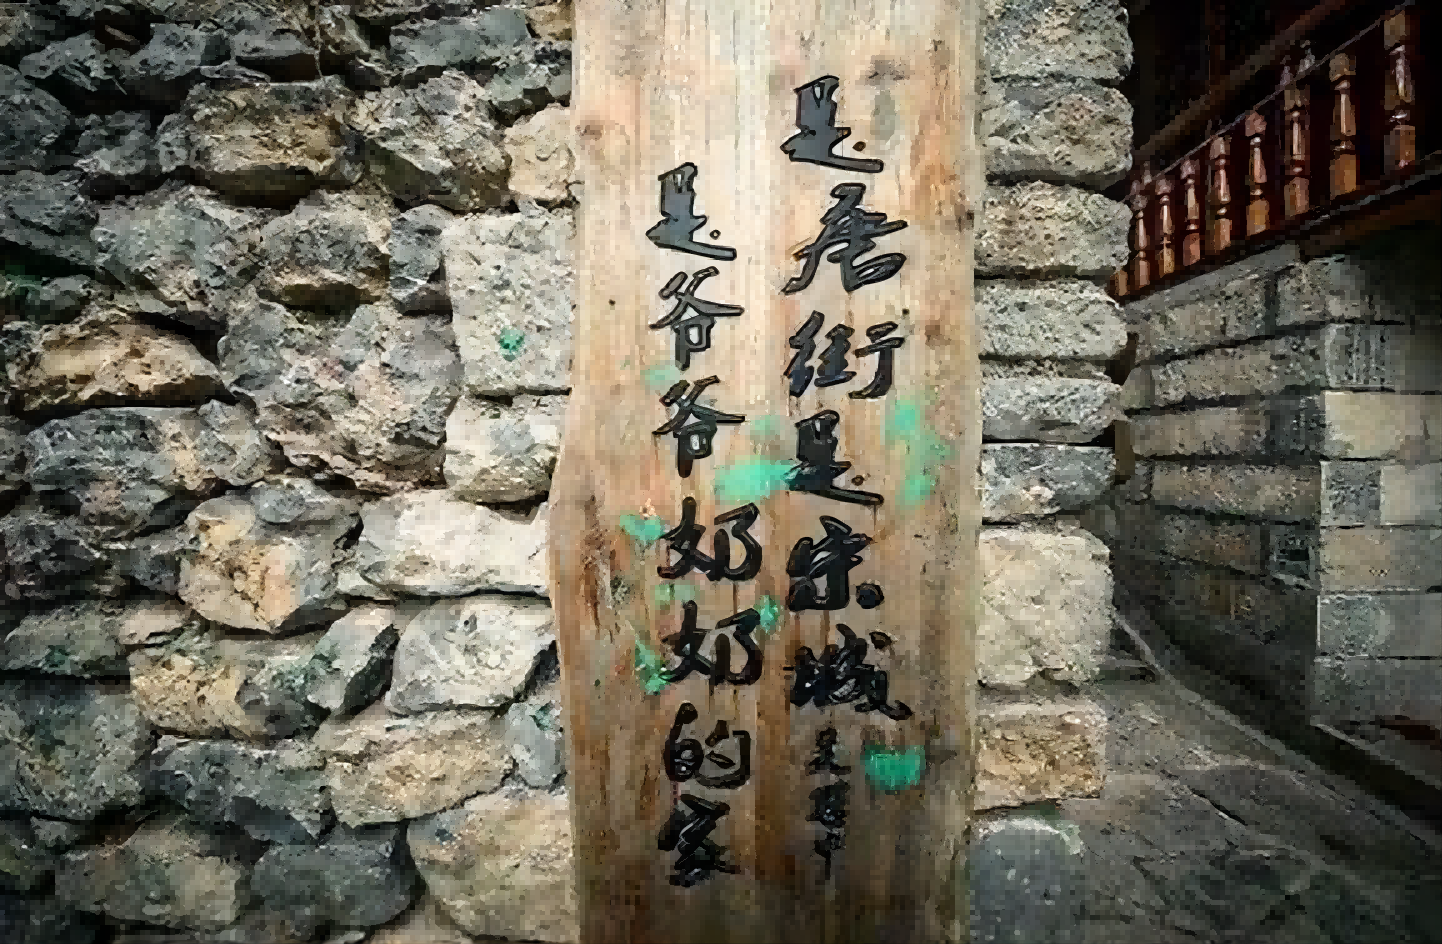 是唐街是宋城
是爷爷奶奶的家